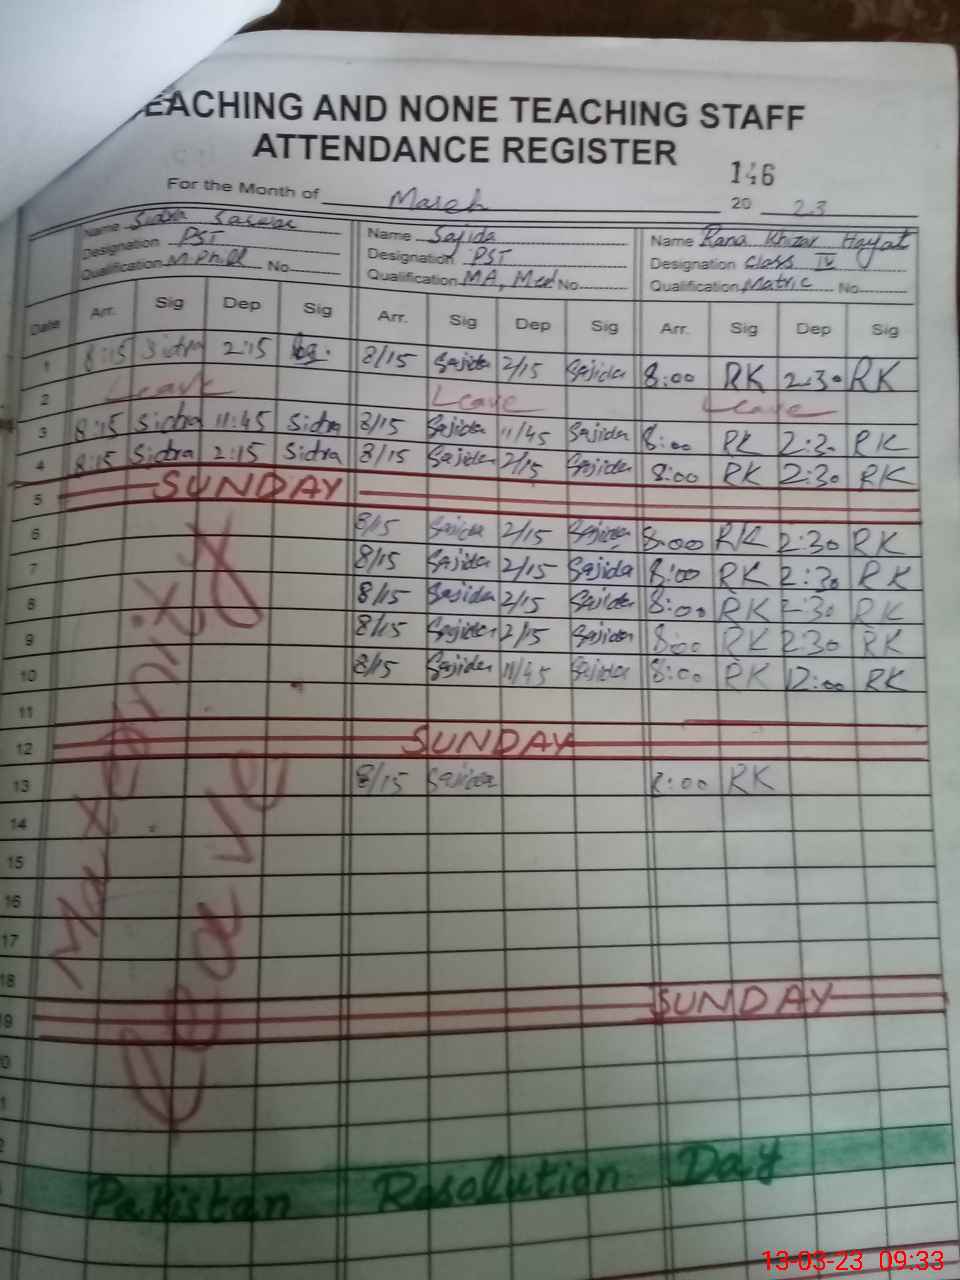 EACHING AND NONE TEACHING STAFF
ATTENDANCE REGISTER
146
For the Month of March 20 23
Name Sidra Sarwar Name Sajida Name Rana Khizar Hayat
Designation PST Designation PST Designation Class IV
Qualification M.Phill No. Qualification MA, Med No. Qualification Matric No.
Date Arr. Sig Dep Sig Arr. Sig Dep Sig Arr. Sig Dep Sig
1 8:15 Sidra 2:15 8/15 Sajida 2/15 Sajida 8:00 RK 2:30 RK
2 Leave Leave Leave
3 8:15 Sidra 11:45 Sidra 8/15 Sajida 11/45 Sajida 8:00 RK 2:30 RK
4 8:15 Sidra 2:15 Sidra 8/15 Sajida 2/15 Sajida 8:00 RK 2:30 RK
5 SUNDAY
6 8/15 Sajida 2/15 Sajida 8:00 RK 2:30 RK
7 8/15 Sajida 2/15 Sajida 8:00 RK 2:30 RK
8 8/15 Sajida 2/15 Sajida 8:00 RK 2:30 RK
9 8/15 Sajida 2/15 Sajida 8:00 RK 2:30 RK
10 8/15 Sajida 11/45 Sajida 8:00 RK 12:00 RK
11
12 SUNDAY
13 8/15 Sajida 8:00 RK
14
15
16
17
18
19 SUNDAY
0
1
2
Maternity
Leave
Pakistan Resolution Day
13-03-23 09:33